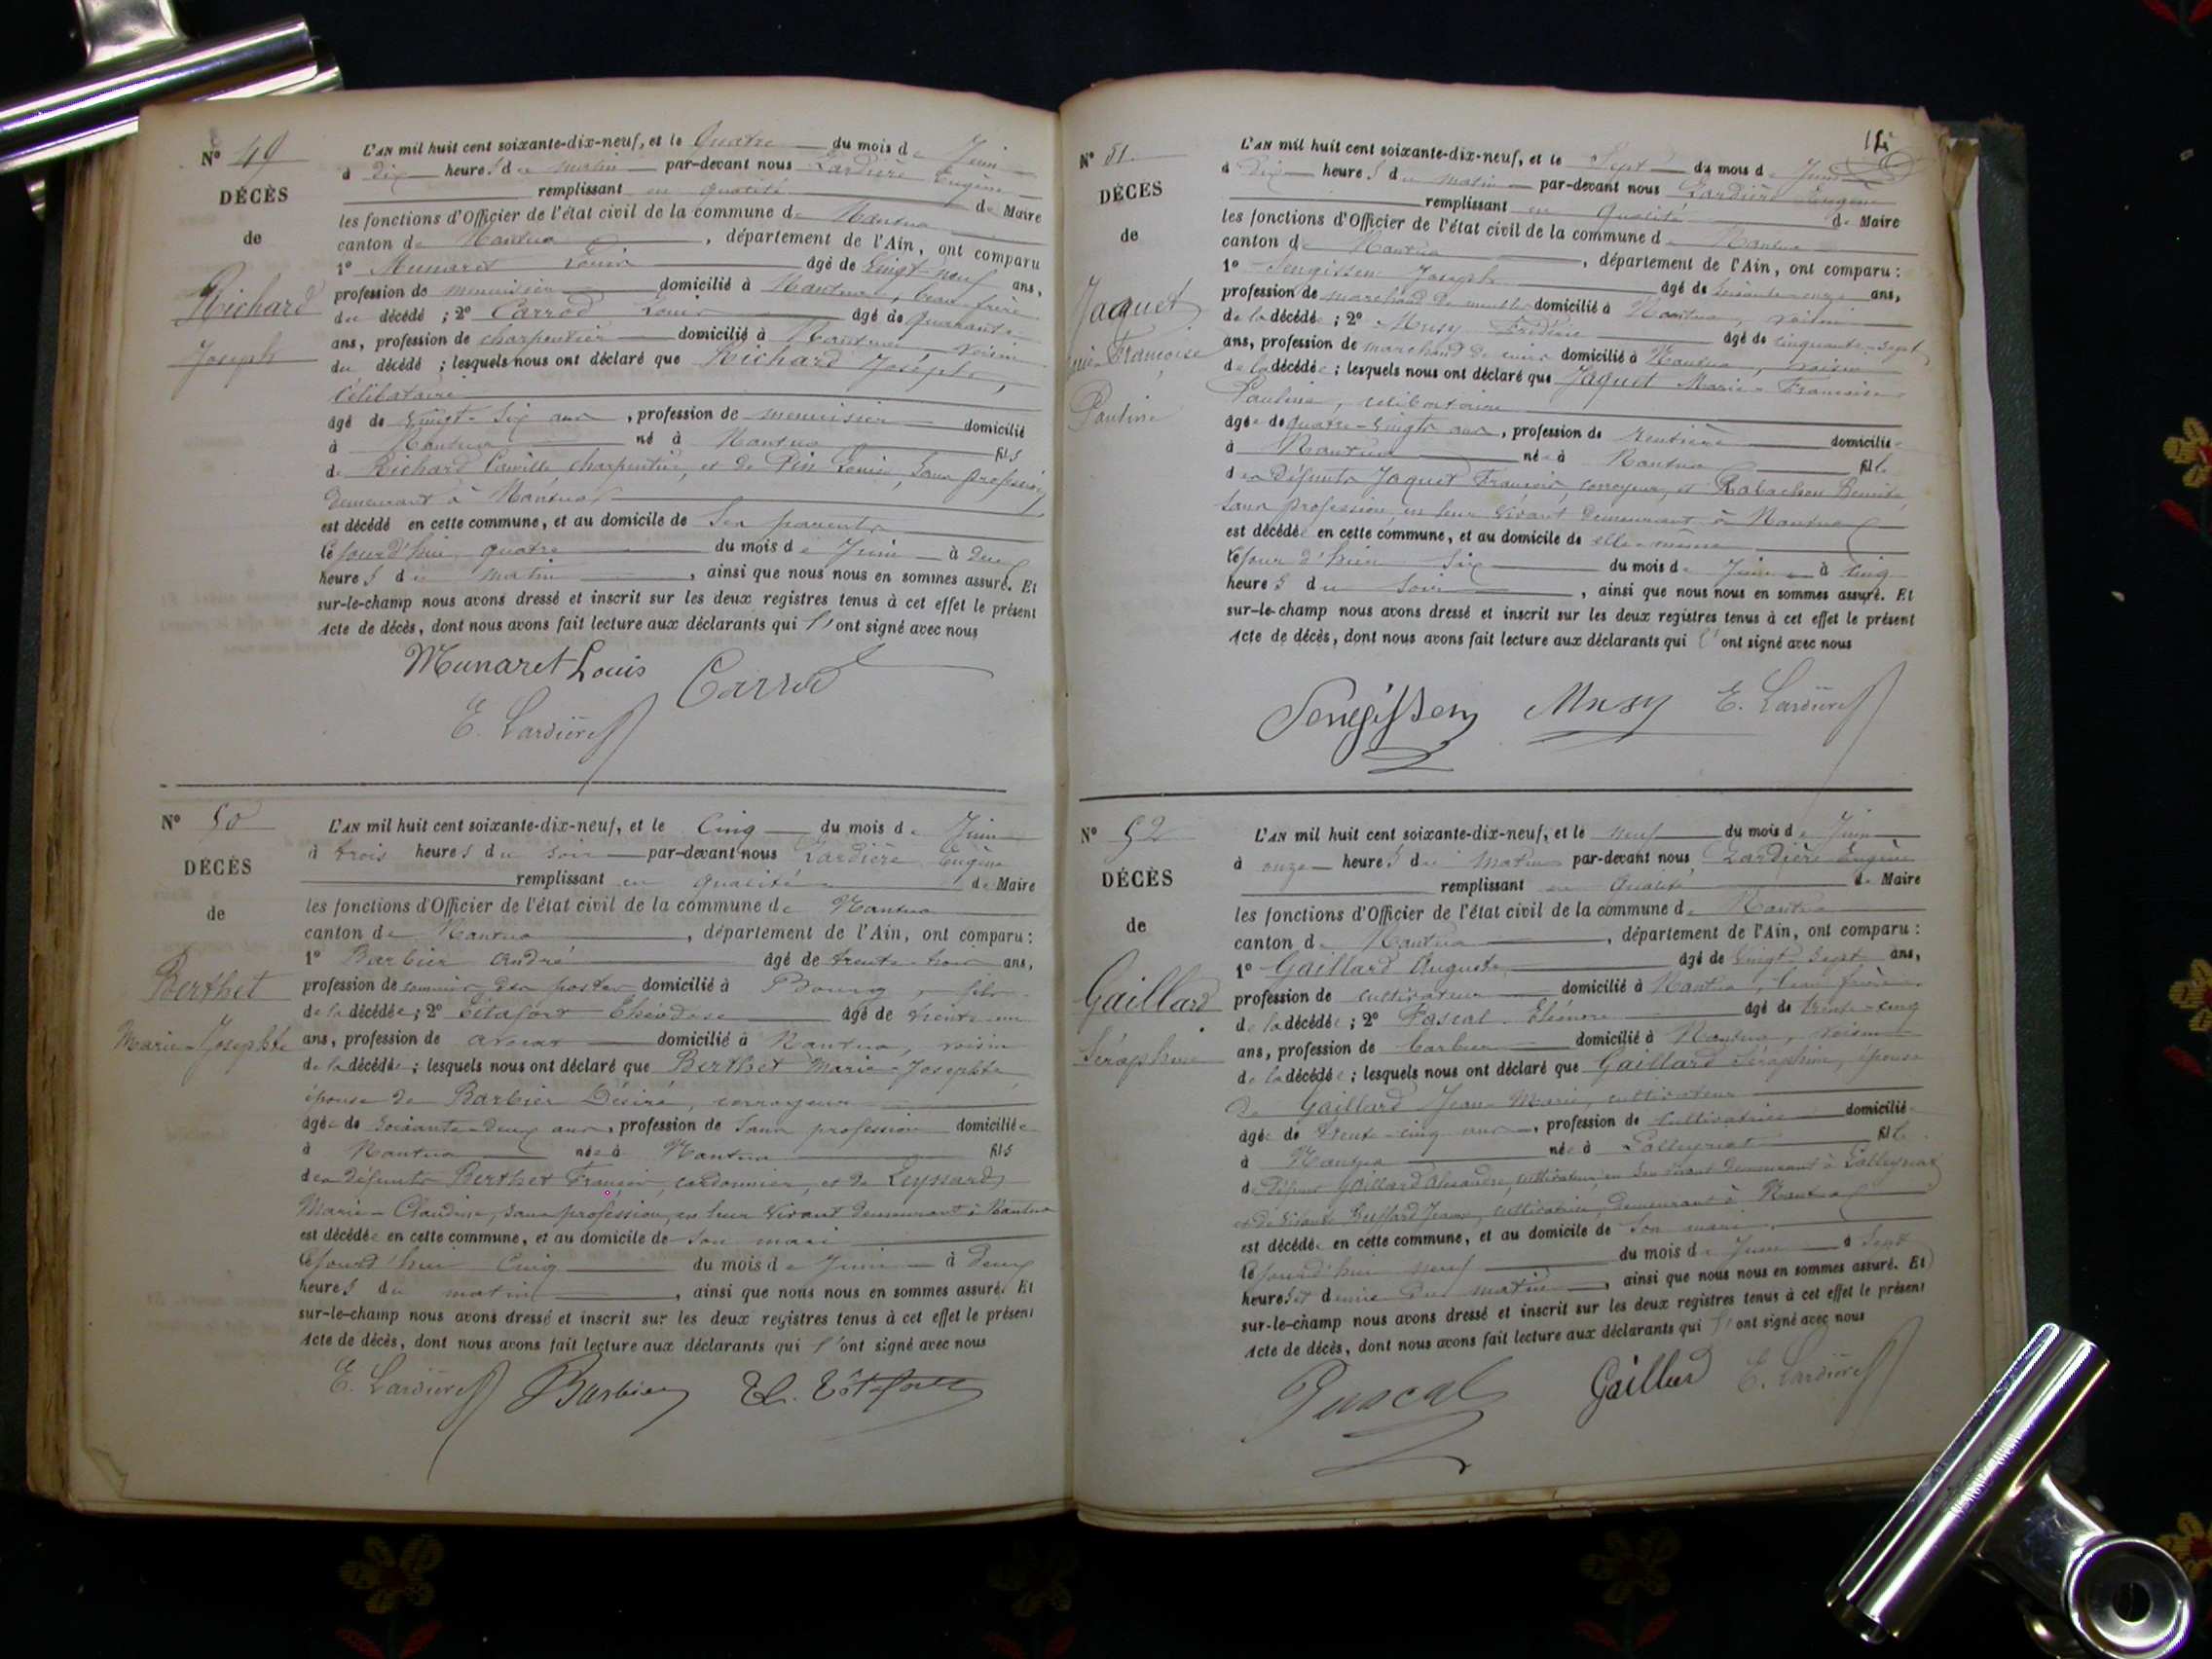 N° 49
DÉCÈS
de
Richard
Joseph
L'AN mil huit cent soixante-dix-neuf, et le Quatre du mois de Juin
à Dix heures du matin par-devant nous Lardière Eugène
remplissant en qualité de Maire
les fonctions d'Officier de l'état civil de la commune de Nantua
canton de Nantua, département de l'Ain, ont comparu
1° Munaret Louis âgé de Vingt-neuf ans,
profession de menuisier domicilié à Nantua, beau-frère
du décédé ; 2° Carrod Louis âgé de quarante
ans, profession de charpentier domicilié à Nantua voisin
du décédé ; lesquels nous ont déclaré que Richard Joseph,
Célibataire
âgé de Vingt-six ans, profession de menuisier domicilié
à Nantua né à Nantua fils
de Richard Camille charpentier, et de Pin Louise, sans profession
demeurant à Nantua
est décédé en cette commune, et au domicile de ses parents
cejourd'hui quatre du mois de Juin à deux
heures du matin, ainsi que nous nous en sommes assuré. Et
sur-le-champ nous avons dressé et inscrit sur les deux registres tenus à cet effet le présent
Acte de décès, dont nous avons fait lecture aux déclarants qui l'ont signé avec nous
Munaret Louis Carrod
E. Lardière
N° 50
DÉCÈS
de
Berthet
Marie-Josephte
L'AN mil huit cent soixante-dix-neuf, et le Cinq du mois de Juin
à trois heures du soir par-devant nous Lardière Eugène
remplissant en qualité de Maire
les fonctions d'Officier de l'état civil de la commune de Nantua
canton de Nantua, département de l'Ain, ont comparu :
1° Barbier André âgé de trente-trois ans,
profession de commis des postes domicilié à Bourg, fils
de la décédée ; 2° Tétafort Théodose âgé de trente-un
ans, profession de avocat domicilié à Nantua, voisin
de la décédée ; lesquels nous ont déclaré que Berthet Marie-Josephte
épouse de Barbier Désiré, corroyeur
âgée de soixante-deux ans, profession de Sans profession domiciliée
à Nantua née à Nantua fils
des défunts Berthet François, cordonnier, et de Leyssard
Marie-Claudine, sans profession, en leur vivant demeurant à Nantua
est décédée en cette commune, et au domicile de son mari
cejourd'hui Cinq du mois de Juin à Deux
heures du matin, ainsi que nous nous en sommes assuré. Et
sur-le-champ nous avons dressé et inscrit sur les deux registres tenus à cet effet le présent
Acte de décès, dont nous avons fait lecture aux déclarants qui l'ont signé avec nous
E. Lardière Barbier
N° 51
DÉCÈS
de
Jaquet
Marie-Françoise
Pauline
L'AN mil huit cent soixante-dix-neuf, et le Sept du mois de Juin
à Dix heures du matin par-devant nous Lardière Eugène
remplissant en Qualité de Maire
les fonctions d'Officier de l'état civil de la commune de Nantua
canton de Nantua, département de l'Ain, ont comparu :
1° Sengissen Joseph âgé de soixante-onze ans,
profession de marchand de meubles domicilié à Nantua, voisin
de la décédée ; 2° Musy Frédéric âgé de cinquante-sept
ans, profession de marchand de cuirs domicilié à Nantua, voisin
de la décédée ; lesquels nous ont déclaré que Jaquet Marie-Françoise
Pauline, célibataire
âgée de quatre-vingts ans, profession de rentière domiciliée
à Nantua née à Nantua fille
des Défunts Jaquet François, corroyeur, et
sans profession, en leur vivant demeurant à Nantua
est décédée en cette commune, et au domicile de elle-même
le jour d'hier Six du mois de Juin à Cinq
heures du soir, ainsi que nous nous en sommes assuré. Et
sur-le-champ nous avons dressé et inscrit sur les deux registres tenus à cet effet le présent
Acte de décès, dont nous avons fait lecture aux déclarants qui l'ont signé avec nous
Sengissen Musy E. Lardière
N° 52
DÉCÈS
de
Gaillard
Séraphine
L'AN mil huit cent soixante-dix-neuf, et le neuf du mois de Juin
à onze heures du Matin par-devant nous Lardière Eugène
remplissant en Qualité de Maire
les fonctions d'Officier de l'état civil de la commune de Nantua
canton de Nantua, département de l'Ain, ont comparu :
1° Gaillard Auguste âgé de Vingt-sept ans,
profession de cultivateur domicilié à Nantua, beau-frère
de la décédée ; 2° Pascal Eléonore âgé de trente-cinq
ans, profession de barbier domicilié à Nantua, voisin
de la décédée ; lesquels nous ont déclaré que Gaillard Séraphine, épouse
de Gaillard Jean-Marie, cultivateur
âgée de trente-cinq ans, profession de cultivatrice domiciliée
à Nantua née à Lalleyriat fille
de Défunt Gaillard Alexandre, cultivateur, en son vivant demeurant à Lalleyriat
et de vivante Jeanne, cultivatrice, demeurant à Nantua
est décédée en cette commune, et au domicile de son mari
cejourd'hui neuf du mois de Juin à Sept
heures et demie du matin, ainsi que nous nous en sommes assuré. Et
sur-le-champ nous avons dressé et inscrit sur les deux registres tenus à cet effet le présent
Acte de décès, dont nous avons fait lecture aux déclarants qui l'ont signé avec nous
Pascal Gaillard E. Lardière